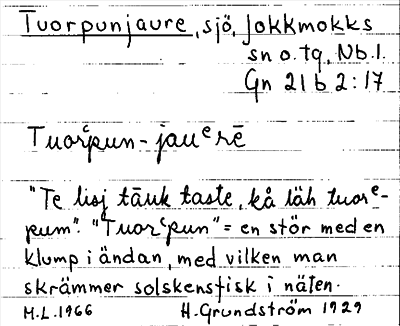 Tuorpunjaure, sjö, Jokkmokks
sn o. tg, Nb. l.
Gn 21 b 2:17
Tuorᵉpun-jauᵉrē
"Te lisj tāuk taste, kå läh tuorᵉ-
pum". "Tuorᵉpun" = en stör med en
klump i ändan, med vilken man
skrämmer solskensfisk i näten.
M.L. 1966 H. Grundström 1929